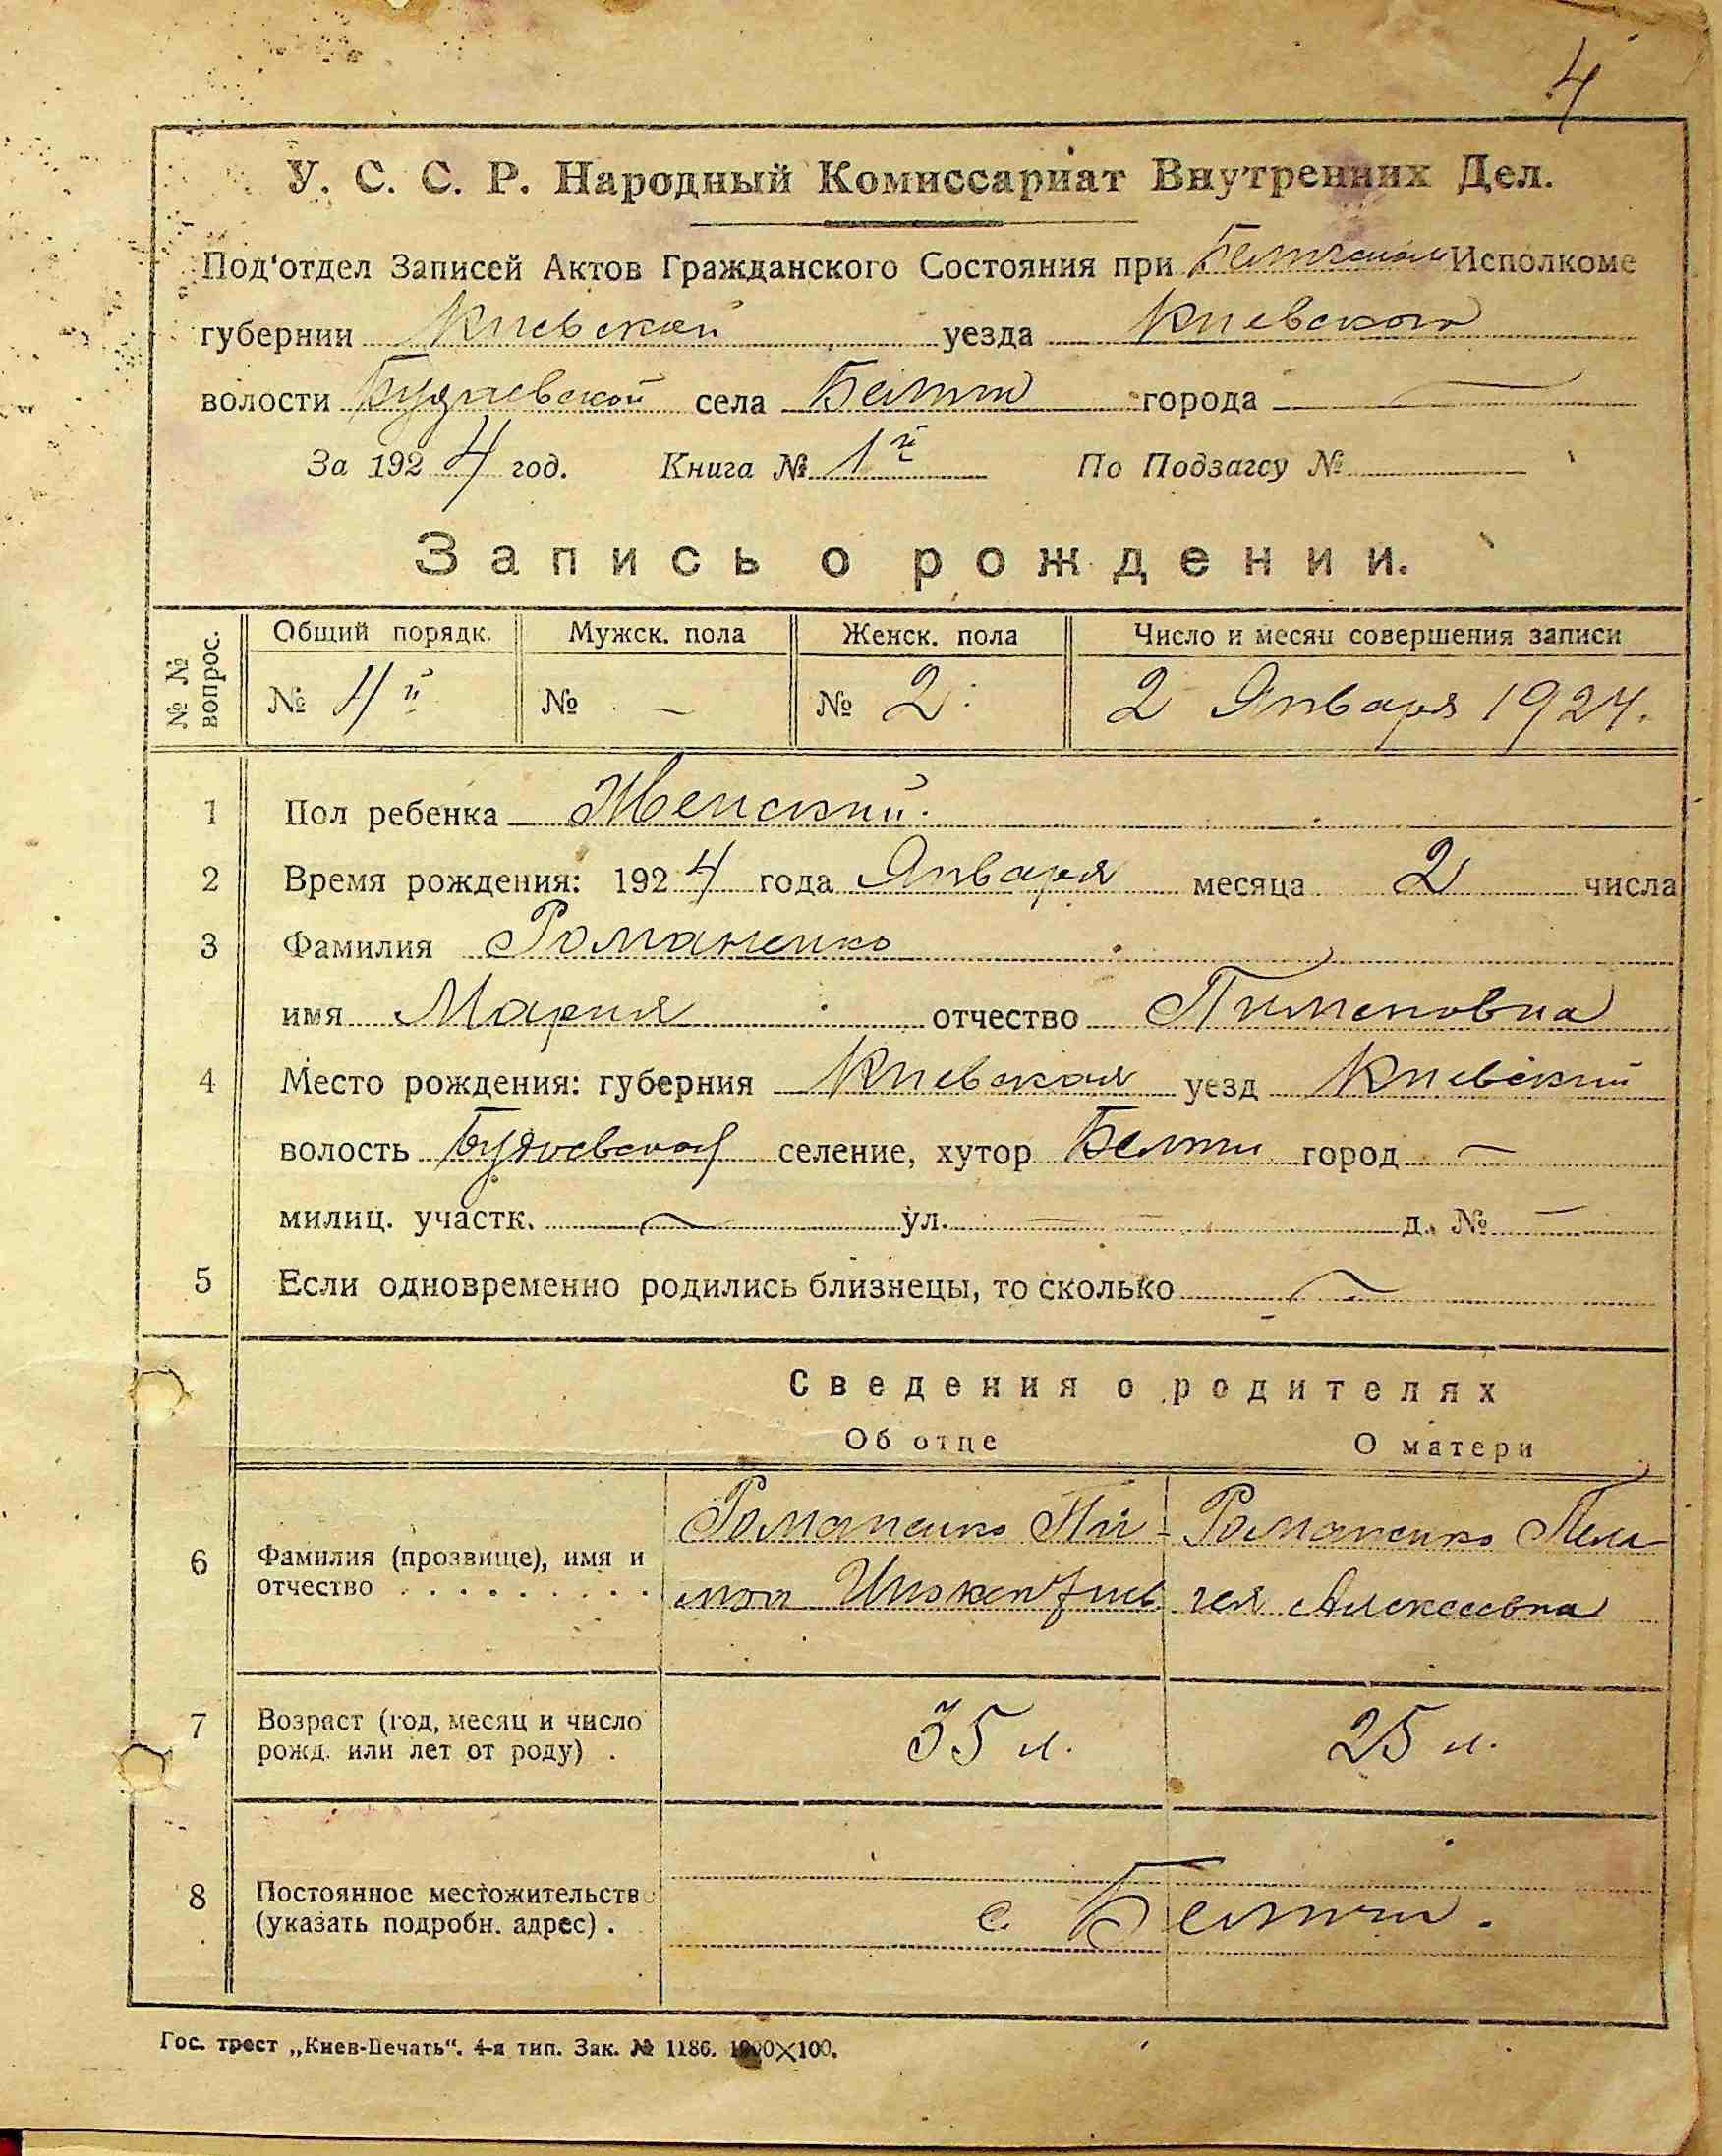 4
У. С. С. Р. Народный Комиссариат Внутренних Дел.
Под'отдел Записей Актов Гражданского Состояния при Беличском Исполкоме
губернии Киевской уезда Киевского
волости Будаевской села Беличи города —
За 1924 год. Книга № 1й По Подзагсу №
Запись о рождении.
№ № вопрос. Общий порядк. Мужск. пола Женск. пола Число и месяц совершения записи
№ 4й № — № 2. 2 Января 1924.
1 Пол ребенка Женский.
2 Время рождения: 1924 года Января месяца 2 числа
3 Фамилия Романенко
имя Мария отчество Пименовна
4 Место рождения: губерния Киевская уезд Киевский
волость Будаевской селение, хутор Беличи город —
милиц. участк. — ул. — д. № —
5 Если одновременно родились близнецы, то сколько —
Сведения о родителях
Об отце О матери
Романенко Пи- Романенко Пела-
6 Фамилия (прозвище), имя и
отчество . . . . . . . . . мон гея Алексеевна
7 Возраст (год, месяц и число
рожд. или лет от роду) . 35 л. 25 л.
8 Постоянное местожительство
(указать подробн. адрес) . с. Беличи.
Гос. трест „Киев-Печать“. 4-я тип. Зак. № 1186. 1000×100.